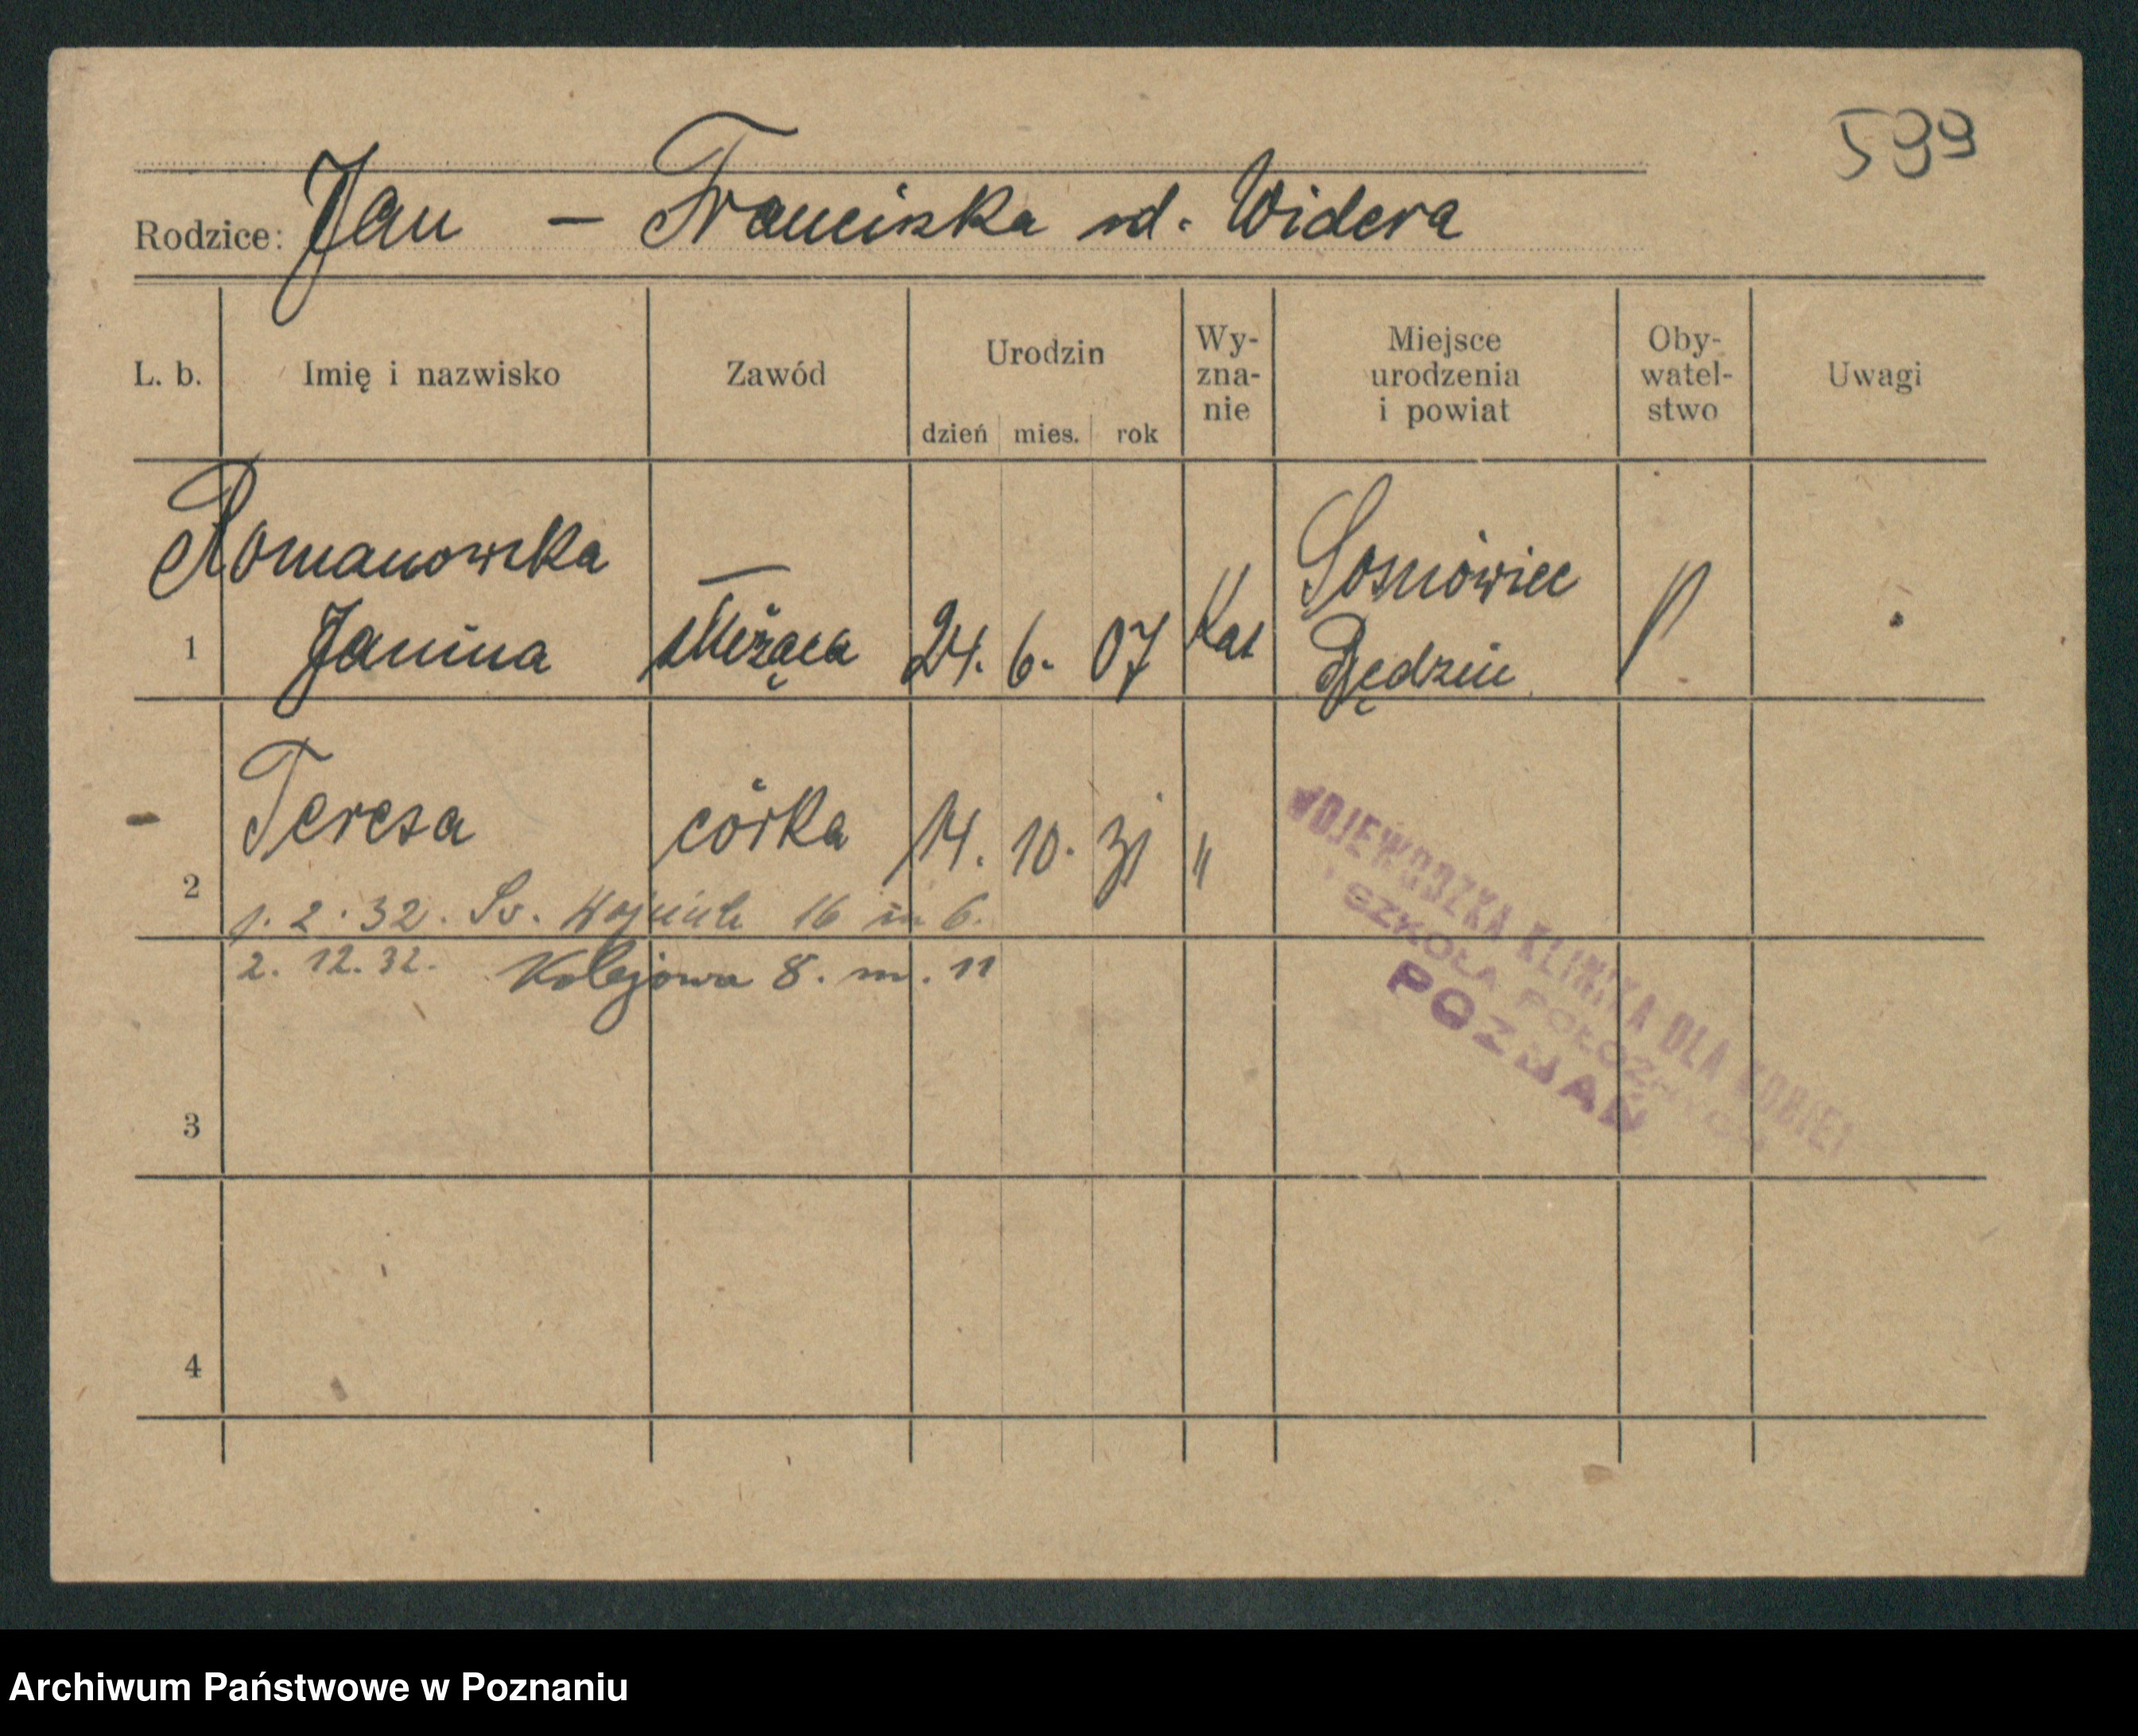 599
Rodzice: Jan — Franciszka vd. Widera
L. b. Imię i nazwisko Zawód Urodzin dzień mies. rok Wy-zna-nie Miejsce urodzenia i powiat Oby-watel-stwo Uwagi
Romanowska Sosnówiec
1 Janina służąca 24. 6. 07 Kat Będzin P
Teresa córka 14. 10. 31 "
2
1. 2. 32. Św. Wojciech 16 m 6.
2. 12. 32. Kolejowa 8. m. 11
3
4
WOJEWÓDZKA KLINIKA DLA KOBIET
i SZKOŁA POŁOŻNYCH
POZNAŃ
Archiwum Państwowe w Poznaniu